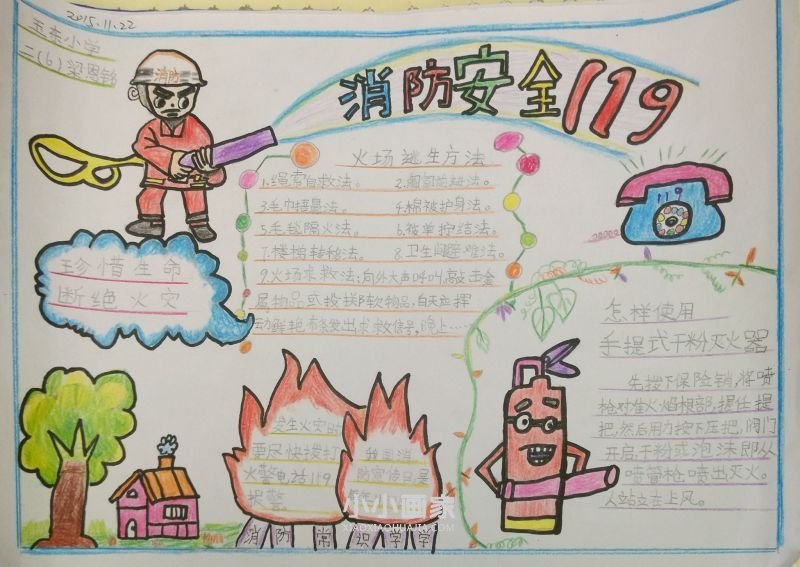 2015.11.22
玉东小学
二(6)梁恩铭
消防
消防安全119
火场逃生方法
1.绳索自救法。 2.匍匐前进法。
3.毛巾捂鼻法。 4.棉被护身法。
5.毛毯隔火法。 6.被单拧结法。
7.楼梯转移法。 8.卫生间避难法。
9.火场求救法:向外大声呼叫,敲击金
属物品或投掷软物品,白天应挥
动鲜艳布条发出求救信号,晚上……
119
珍惜生命
断绝火灾
怎样使用
手提式干粉灭火器
先按下保险销,将喷
枪对准火焰根部,提任提
把,然后用力按下压把,阀门
开启,干粉或泡沫即从
喷管枪喷出灭火。
人站立在上风。
发生火灾时
要尽快拨打
火警电话119
报警。
我国消
防宣传日是
消防常识字字
小小画家
XIAOXIAOHUAJIA.COM